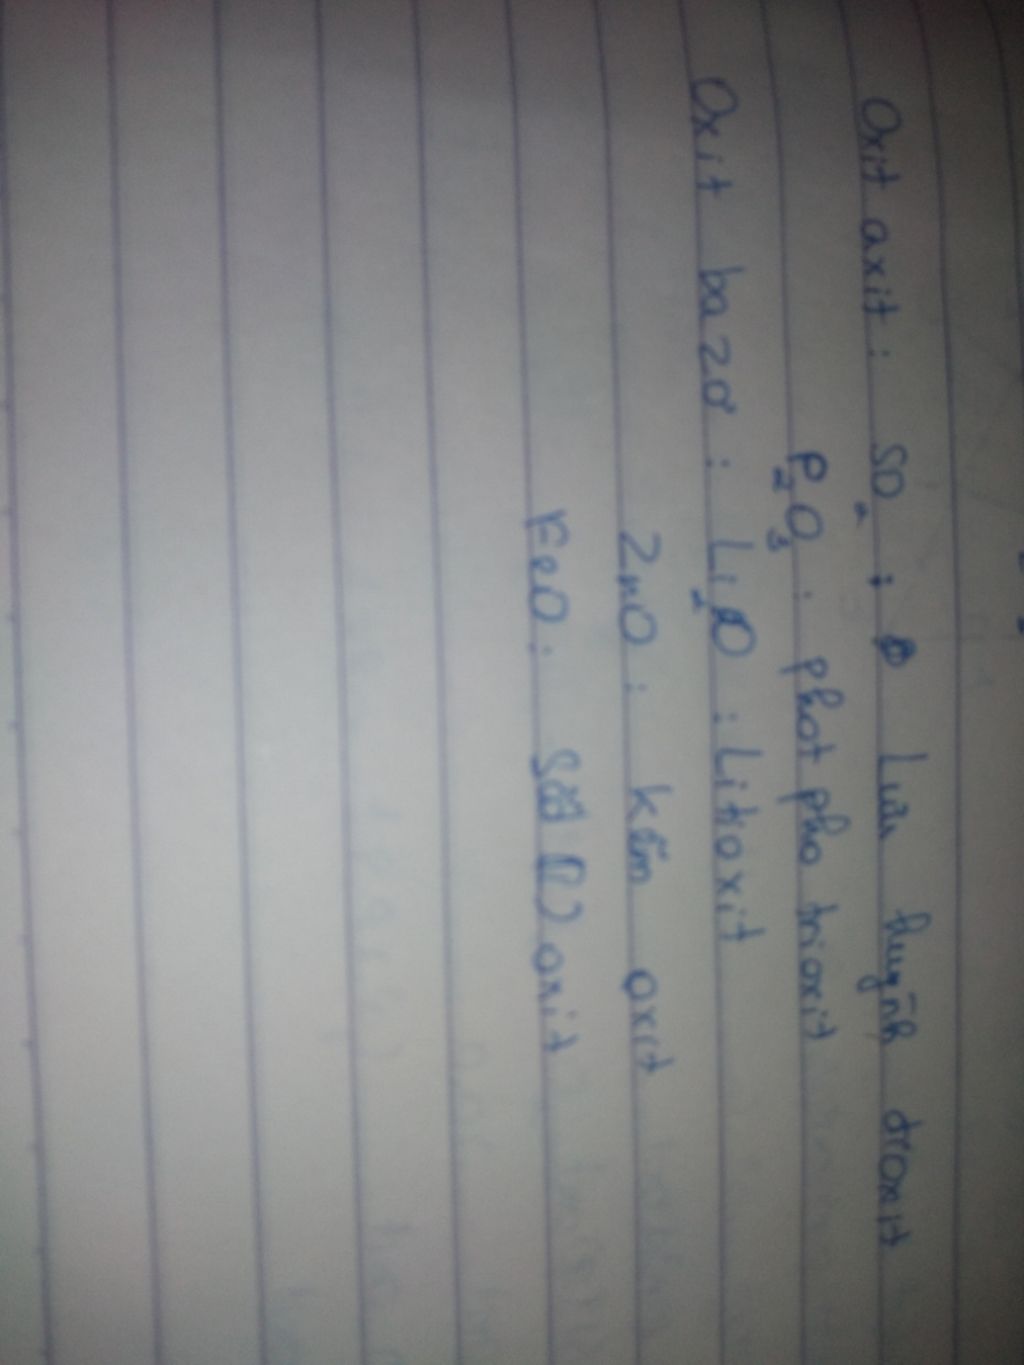 Oxit axit : SO₂ : Lưu huỳnh đioxit
P₂O₃ : phot pho trioxit
Oxit bazơ : Li₂O : Liti oxit
ZnO : kẽm oxit
FeO : Sắt (II) oxit